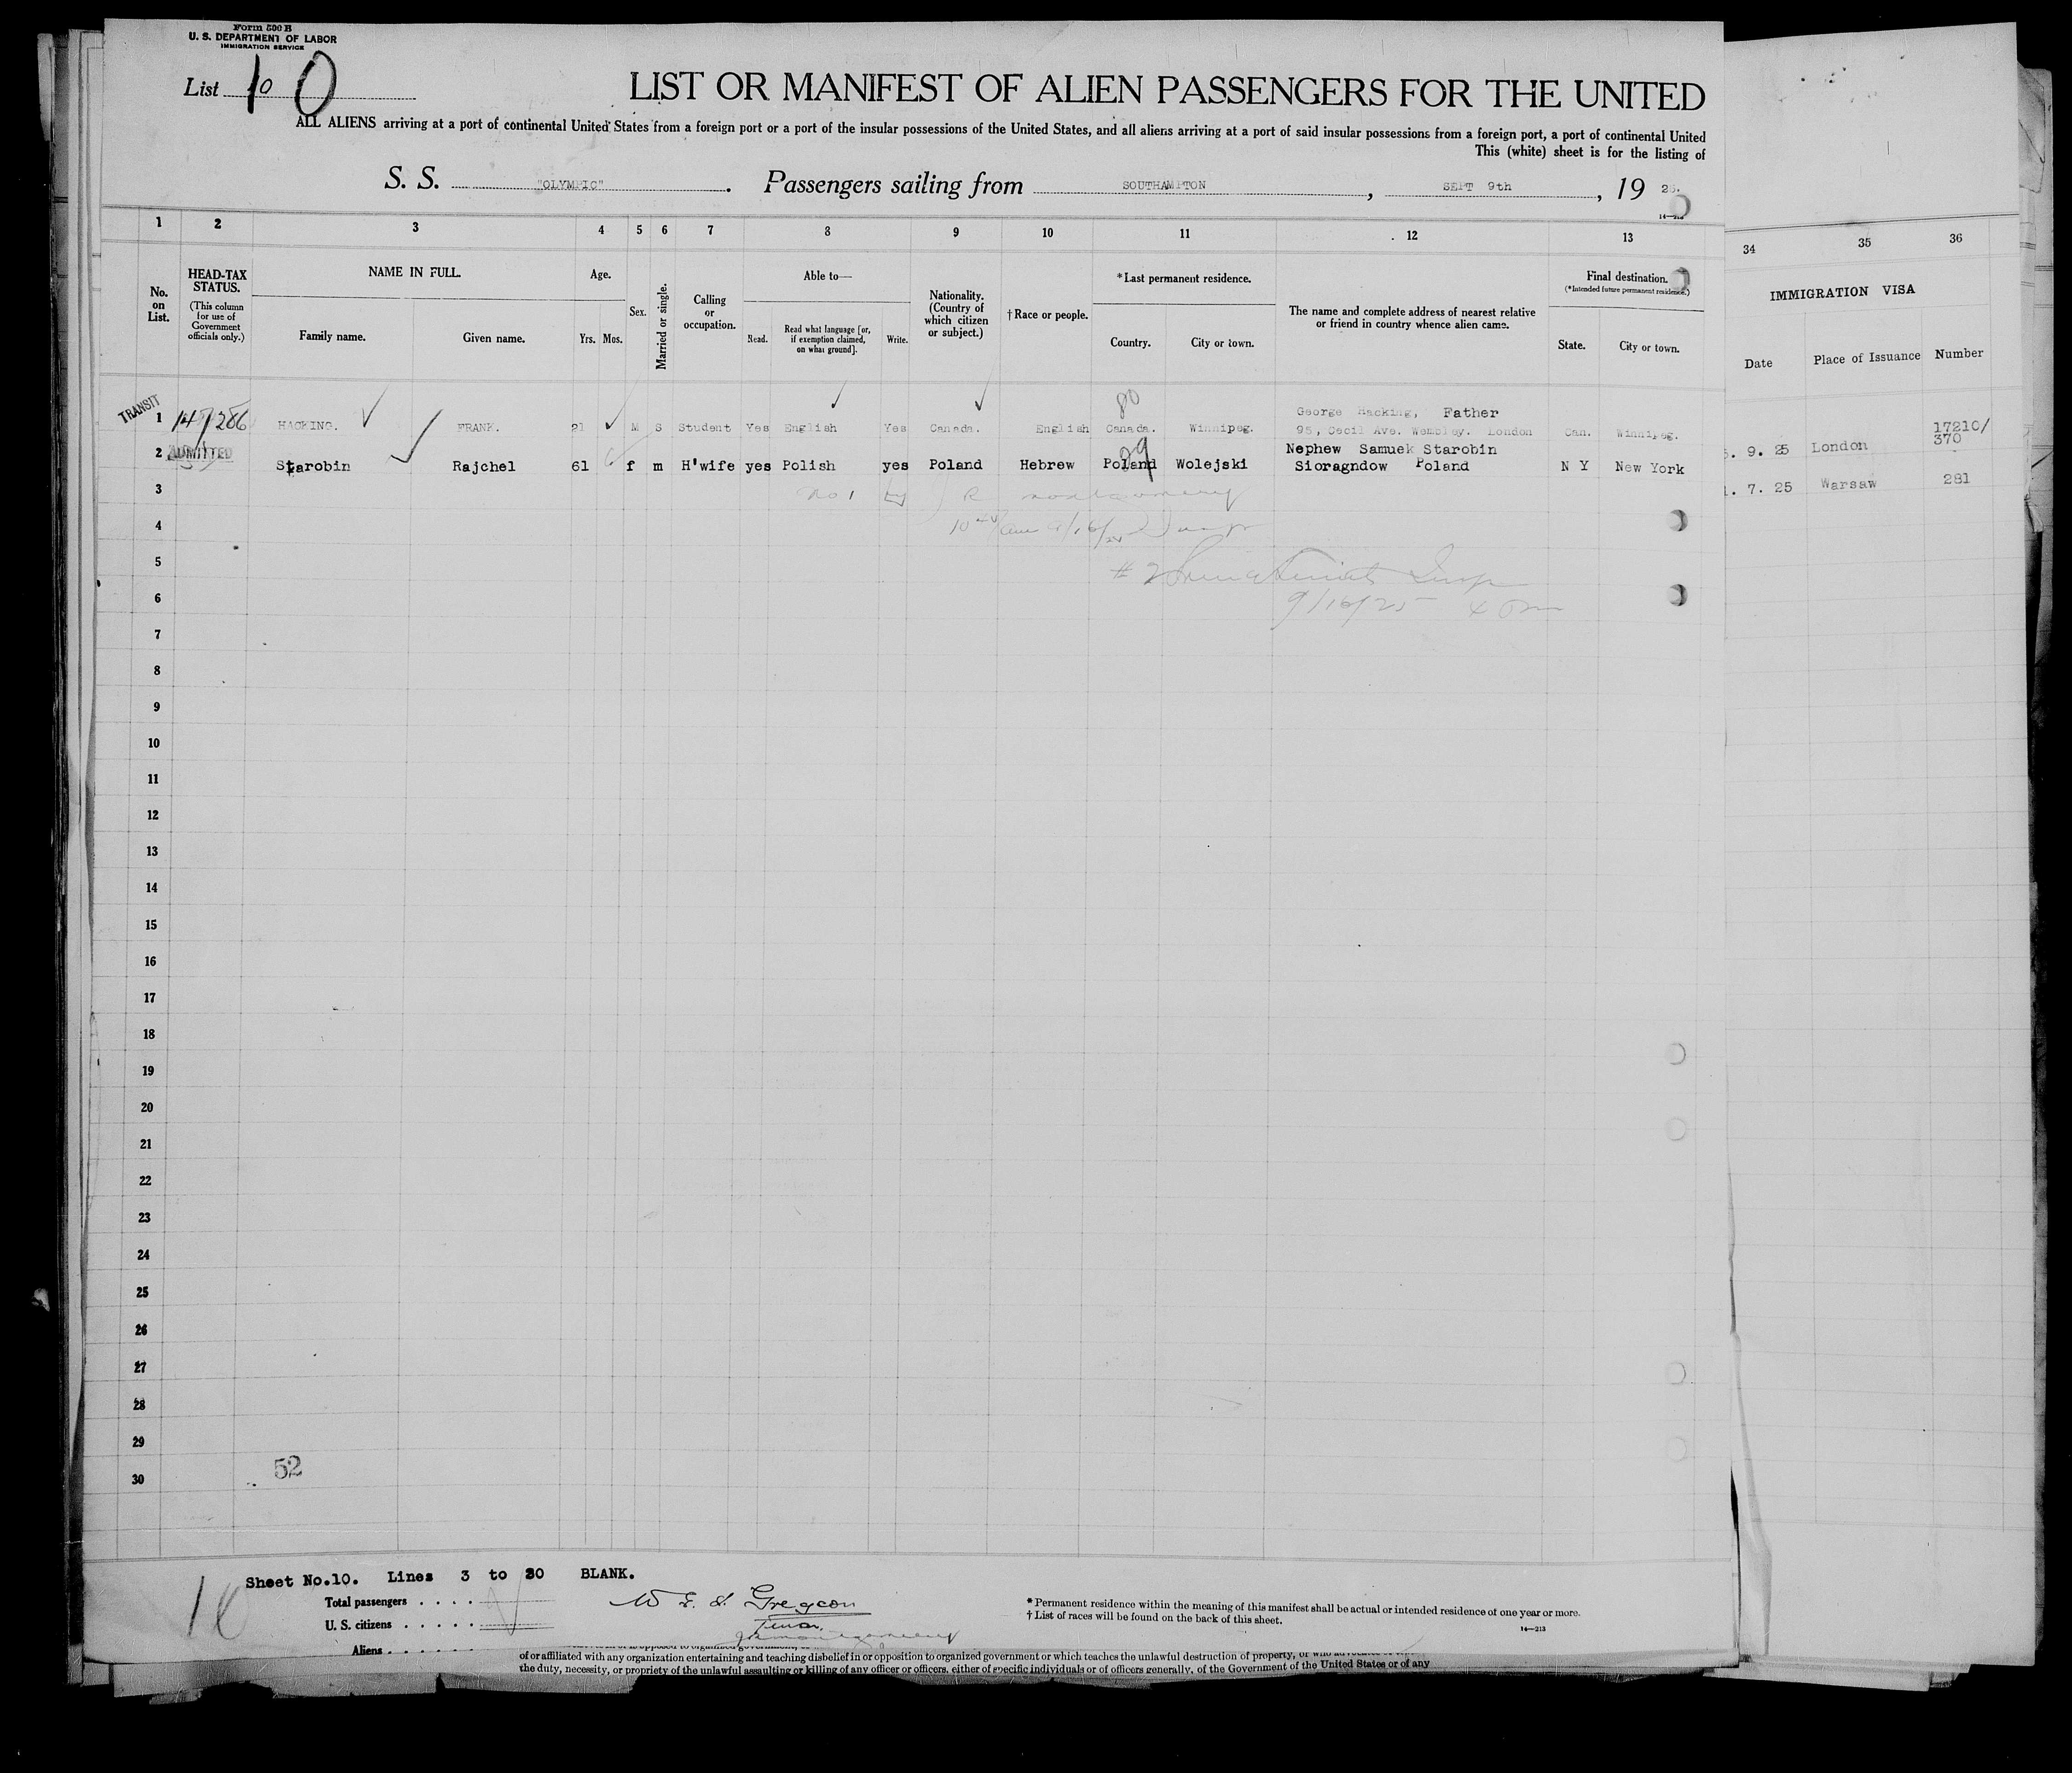 Form 500 B
U. S. DEPARTMENT OF LABOR
IMMIGRATION SERVICE
List 10 10
LIST OR MANIFEST OF ALIEN PASSENGERS FOR THE UNITED
ALL ALIENS arriving at a port of continental United States from a foreign port or a port of the insular possessions of the United States, and all aliens arriving at a port of said insular possessions from a foreign port, a port of continental United
This (white) sheet is for the listing of
S. S. "OLYMPIC". Passengers sailing from SOUTHAMPTON, SEPT 9th, 19
1 2 3 4 5 6 7 8 9 10 11 12 13
34 35 36
No. on List.
HEAD-TAX STATUS.
(This column for use of Government officials only.)
NAME IN FULL.
Family name. Given name.
Age.
Yrs. Mos.
Sex.
Married or single.
Calling or occupation.
Able to—
Read. Read what language [or, if exemption claimed, on what ground]. Write.
Nationality. (Country of which citizen or subject.)
†Race or people.
*Last permanent residence.
Country. City or town.
The name and complete address of nearest relative or friend in country whence alien came.
Final destination.
(*Intended future permanent residence.)
State. City or town.
IMMIGRATION VISA
Date Place of Issuance Number
TRANSIT
80
George Hacking, Father
1 147/286 HACKING. FRANK. 21 M S Student Yes English Yes Canada. English Canada. Winnipeg. 95, Cecil Ave. Wembley. London Can. Winnipeg.
. 9. 25 London 17210/370
ADMITTED
Nephew Samuek Starobin
2 Starobin Rajchel 61 f m H'wife yes Polish yes Poland Hebrew Poland Wolejski Sioragndow Poland N Y New York
. 7. 25 Warsaw 281
3 No 1 by R Montgomery
4
5
9/16/25
6
7
8
9
10
11
12
13
14
15
16
17
18
19
20
21
22
23
24
25
26
27
28
29
30
52
Sheet No.10. Lines 3 to 30 BLANK.
10
Total passengers . . . .
U. S. citizens . . . . .
Aliens . . . . . .
*Permanent residence within the meaning of this manifest shall be actual or intended residence of one year or more.
†List of races will be found on the back of this sheet.
14—213
of or affiliated with any organization entertaining and teaching disbelief in or opposition to organized government or which teaches the unlawful destruction of property, or who
the duty, necessity, or propriety of the unlawful assaulting or killing of any officer or officers, either of specific individuals or of officers generally, of the Government of the United States or of any